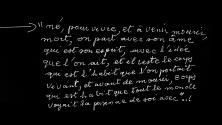 "né, pour vivre, et à venir mourir
mort, on part avec son âme,
qui est son esprit, avec l'idée
que l'on ait, et il reste le corps
qui est l'habit que l'on portait
vivant, et avant de mourir, corps
qui est habit que tout le monde
voyait la personne de soi avec ..!